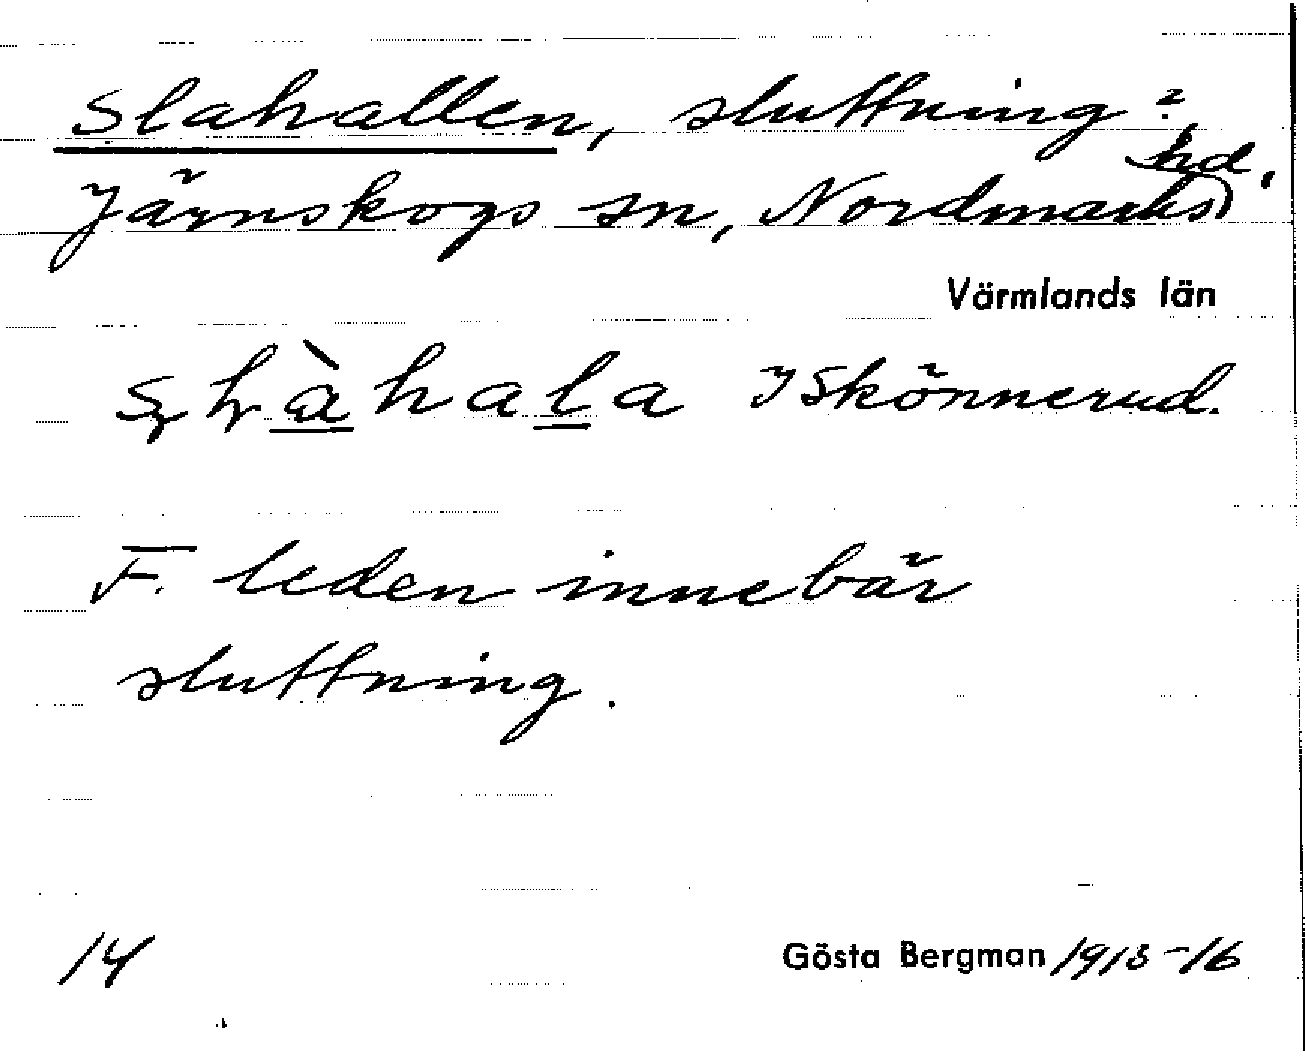 Slahallen, sluttning?
Järnskogs sn, Nordmarks hd.
Värmlands län
I Skönnerud.
F. leden innebär
sluttning.
14
Gösta Bergman 1913-16